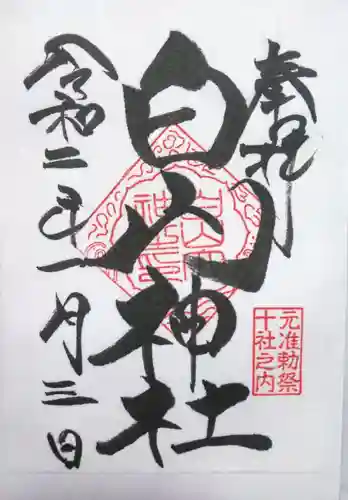 奉拝
白山神社
令和二年一月三日
元准勅祭
十社之内